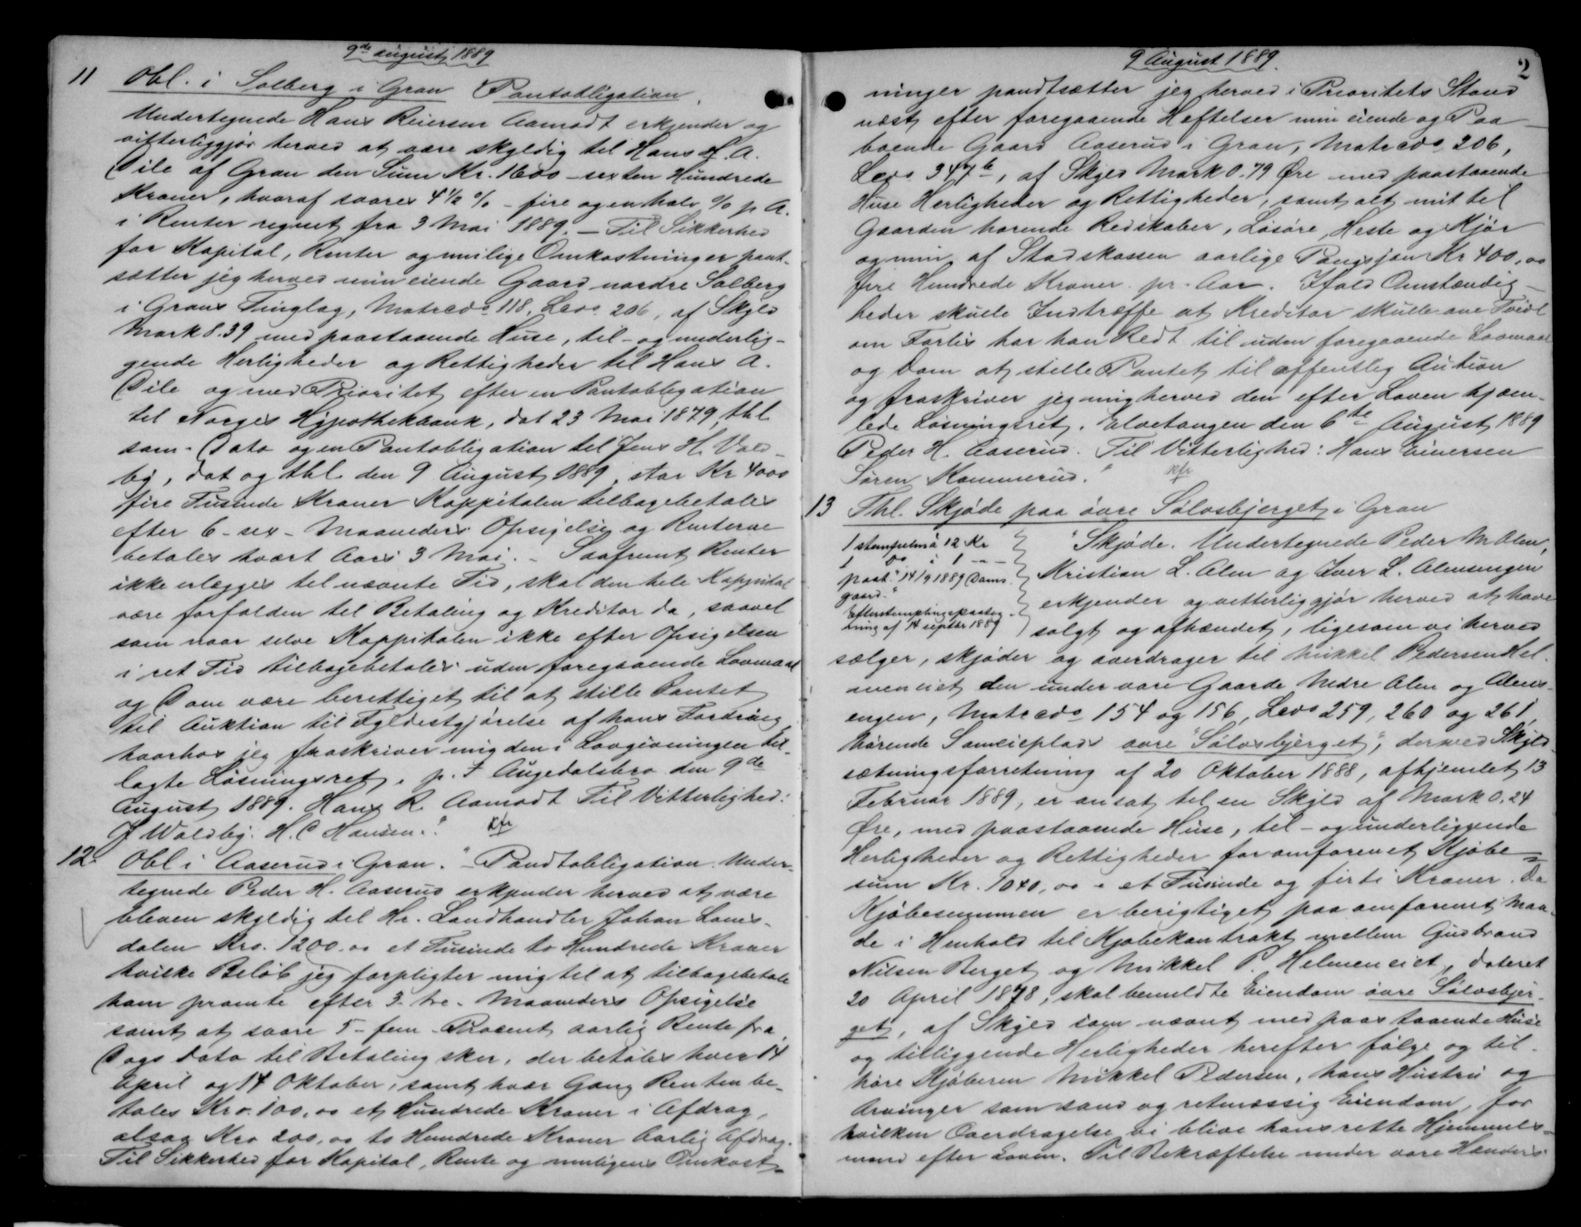 9de august 1889
11 Obl. i Solberg i Gran "Pantobligation.
Undertegnede Hans Reiersen Aamodt erkjender og
vitterliggjør herved at være skyldig til Hans H. A.
Dile af Gran den Sum Kr. 1600 - sexten Hundrede
Kroner, hvoraf svares 4½ % - fire og en halv % p. A.
i Renter regnet fra 3 Mai 1889. - Til Sikkerhed
for Kapital, Renter og mulige Omkostninger pant-
sætter jeg herved min eiende Gaard nordre Solberg
i Grans Tinglag, Matr. No 118, Lno. 206, af Skyld
Mark 8.39 med paastaaende Huse, til- og underlig-
gende Herligheder og Rettigheder til Hans A.
Dile og med Prioritet efter en Pantobligation
til Norges Hypothekbank, dat 23 Mai 1879, thl.
sam. Dato og en Pantobligation til Jens H. Vold-
by, dat og thl. den 9 August 1889, stor Kr 4000
fire Tusinde Kroner Kappitalen tilbagebetales
efter 6 - sex - Maaneders Opsigelse og Renterne
betales hvert Aars 3 Mai. - Saafremt Renter
ikke erlægges til nævnte Tid, skal den hele Kappital
være forfalden til Betaling og Kreditor da, saavel
som naar selve Kappitalen ikke efter Opsigelsen
i ret Tid tilbagebetales uden foregaaende Lovmaal
og Dom være berettiget til at stille Pantet
til Auktion til Fyldestgjørelse af hans Fordring
hvorhos jeg fraskriver mig den i Lovgivningen hil-
lagte Løsningsret. p. t Augedalsbro den 9de
August 1889. Hans R. Aamodt Til Vitterlighed:
J Woldby. H. C Hansen."
12. Obl i Aaserud i Gran. "Pandtobligation. Under-
tegnede Peder H. Aaserud erkjender herved at være
bleven skyldig til Hr. Landhandler Johan Lunds-
dalen Kro. 1200.00 et Tusinde to Hundrede Kroner
hvilke Beløb jeg forpligter mig til at tilbagebetale
ham promte efter 3 - tre - Maaneders Opsigelse
samt at svare 5 - fem - Procent aarlig Rente fra
Dags Dato til Betaling sker, der betales hver 14
April og 14 Oktober, samt hver Gang Renten be-
tales Kro. 100,00 et Hundrede Kroner i Afdrag,
altsaa Kro 200,00 to Hundrede Kroner Aarlig Afdrag.
Til Sikkerhed for Kapital, Rente og muligens Omkost-
9 August 1889.
2
ninger pandtsætter jeg herved i Prioritets Stand
næst efter foregaaende Heftelser min eiende og Paa-
boende Gaard Aaserud i Gran, Matr. No 206,
Lno. 347b, af Skyld Mark 0.79 Øre med paastaaende
Huse Herligheder og Rettigheder, samt alt mit til
Gaarden hørende Redskaber, Løsøre, Heste og Kjør
og min af Stadskassen aarlige Pengsjon Kr 400,00
fire Hundrede Kroner pr. Aar. Ifald Omstændig-
heder skulle Indtræffe at Kreditor skulle ane Tvivl
om Forlis har han Redt til uden foregaaende Lovmaal
og Dom at stille Pantet til offentlig Auktion
og fraskriver jeg mig herved den efter Loven hjem-
lede Løsningsret. Elvetangen den 6te August 1889
Peder H. Aaserud. Til Vitterlighed: Hans Einersen
Søren Kammerud."
13 Thl. Skjøde paa øvre Sølvsbjerget i Gran
1 stempelmá 12 Kr
1 Do " 1 -
paat. 14/9 1889 Dams-
gaard."
Efterstemplingspaateg-
ning af 14 septbr 1889
"Skjøde. Undertegnede Peder M Alm,
Kristian L. Alm og Iver L. Almsengen
erkjender og vitterliggjør herved at have
solgt og afhændet, ligesom vi herved
sælger, skjøder og overdrager til Mikkel Pedersen Hel-
meneiet den under vore Gaarde Nedre Alm og Alms-
engen, Matr. No 154 og 156, Lno 259, 260 og 261,
hørende Sameieplads øvre "Sølvsbjerget", der ved Skyld-
sætningsforretning af 20 Oktober 1888, afhjemlet 13
Februar 1889, er ansat til en Skyld af Mark 0.24
Øre, med paastaaende Huse, til- og underliggende
Herligheder og Rettigheder for omforenet Kjøbe-
sum Kr. 1040,00 - et Tusinde og firti Kroner. Da
Kjøbesummen er berigtiget paa omforenet Maa-
de i Henhold til Kjøbekontrakt mellem Gudbrand
Nilsen Berget og Mikkel P. Helmeneiet, dateret
20 April 1878, skal bemeldte Eiendom øvre Sølvsbjer-
get, af Skyld som nævnt med paastaaende Huse
og tilliggende Herligheder herefter følge og til-
høre Kjøberen Mikkel Pedersen, hans Hustru og
Arvinger som sand og retmæssig Eiendom, for
hvilken Overdragelse vi blive hans rette Hjemmels-
mænd efter Loven. Til Bekræftelse under vore Hænders